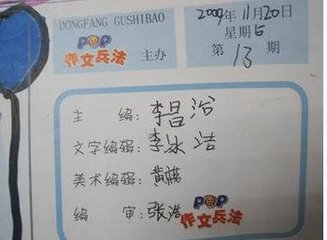 DONGFANG GUSHIBAO
POP
作文兵法 主办
2009年11月20日
星期5
第13期
主 编：李昌浴
文字编辑：李冰洁
美术编辑：黄
编 审：张浩
POP
作文兵法